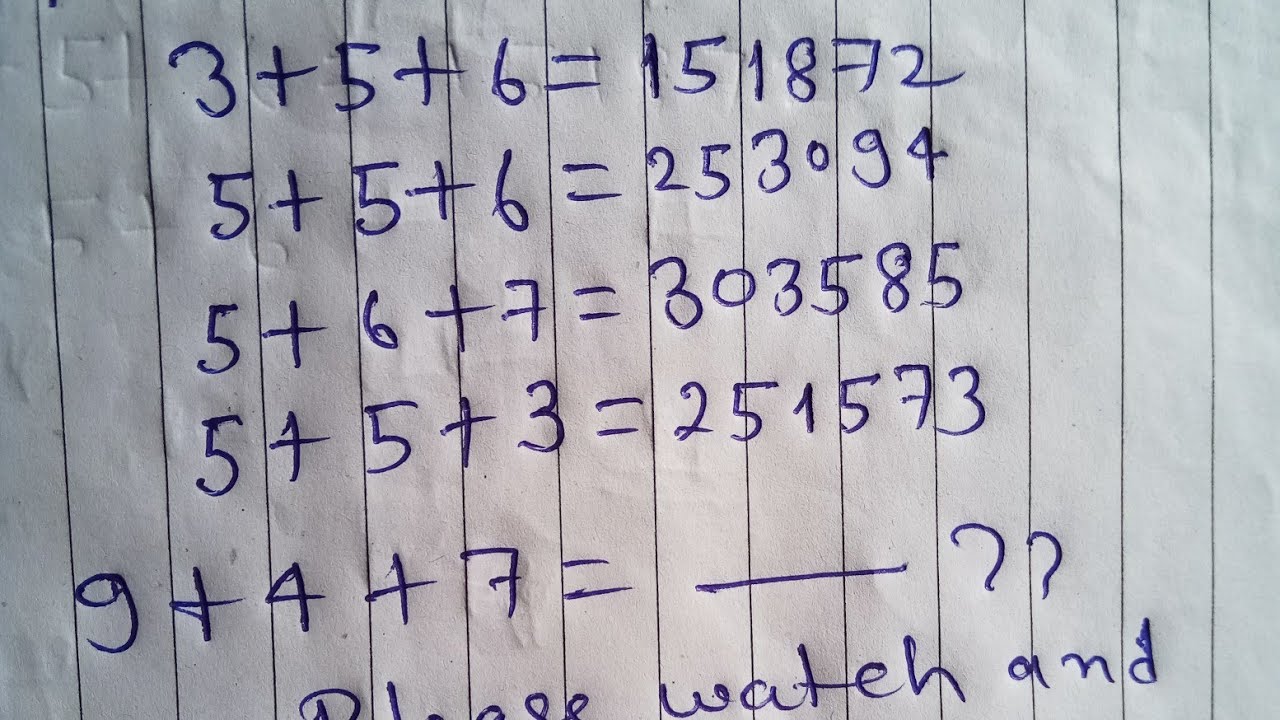 3+5+6=151872
5+5+6=253094
5+6+7=303585
5+5+3=251573
9+4+7= ——— ??
Please watch and